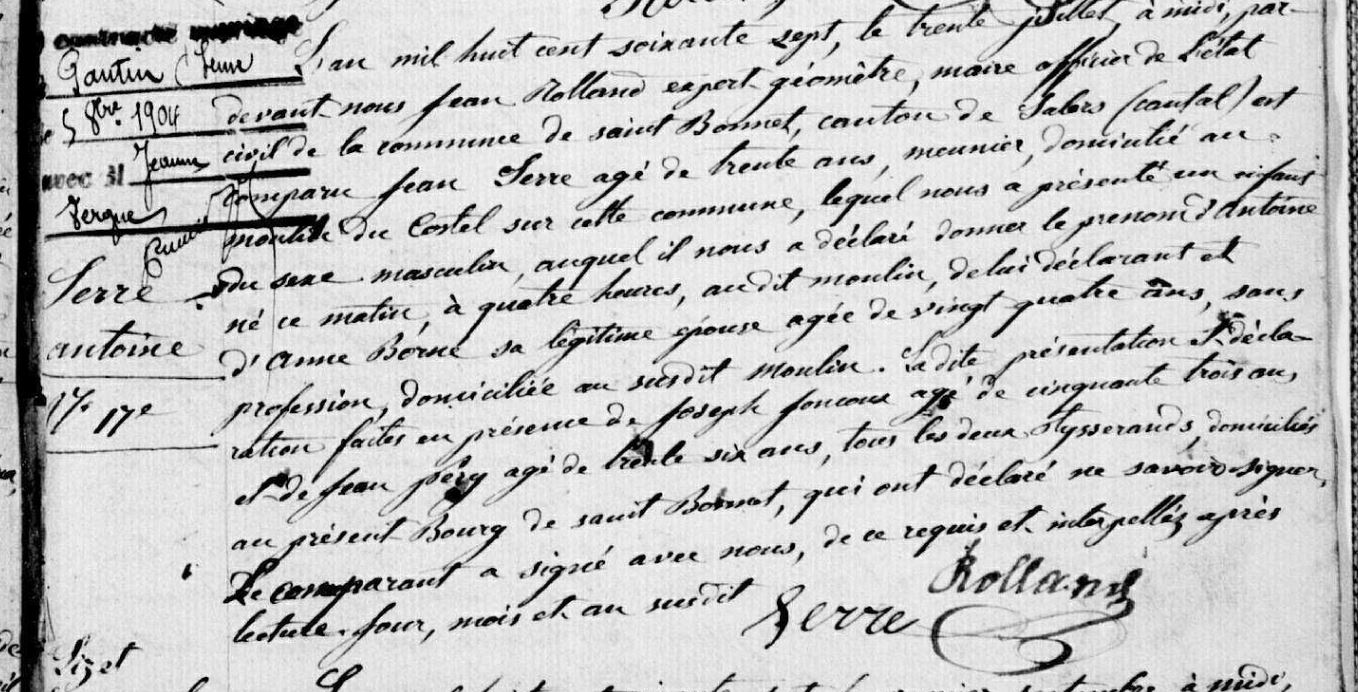 contracté mariage
Pantin (Seine
5 8bre 1904
avec
Jeanne
Vergne
Serre
antoine
17e
L'an mil huit cent soixante sept, le trente juillet, à midi, par-
devant nous Jean Rolland expert géomètre, maire officier de l'état
civil de la commune de saint Bonnet, canton de Salers (cantal) est
comparu Jean Serre agé de trente ans, meunier, domicilié au
moulin du Costel sur cette commune, lequel nous a présenté un enfant
du sexe masculin, auquel il nous a déclaré donner le prenom d'antoine
né ce matin, à quatre heures, audit moulin, de lui déclarant et
d'anne Borne sa légitime épouse agée de vingt quatre ans, sans
profession, domiciliée au susdit moulin. Ladite présentation et décla-
ration faites en présence de Joseph foncoux agé de cinquante trois ans,
et de Jean péry agé de trente six ans, tous les deux tysserands, domiciliés
au présent Bourg de saint Bonnet, qui ont déclaré ne savoir signer,
Le comparant a signé avec nous, de ce requis et interpellés après
lecture. Jour, mois et an susdit
Serre
Rolland
Lizet
à midi,